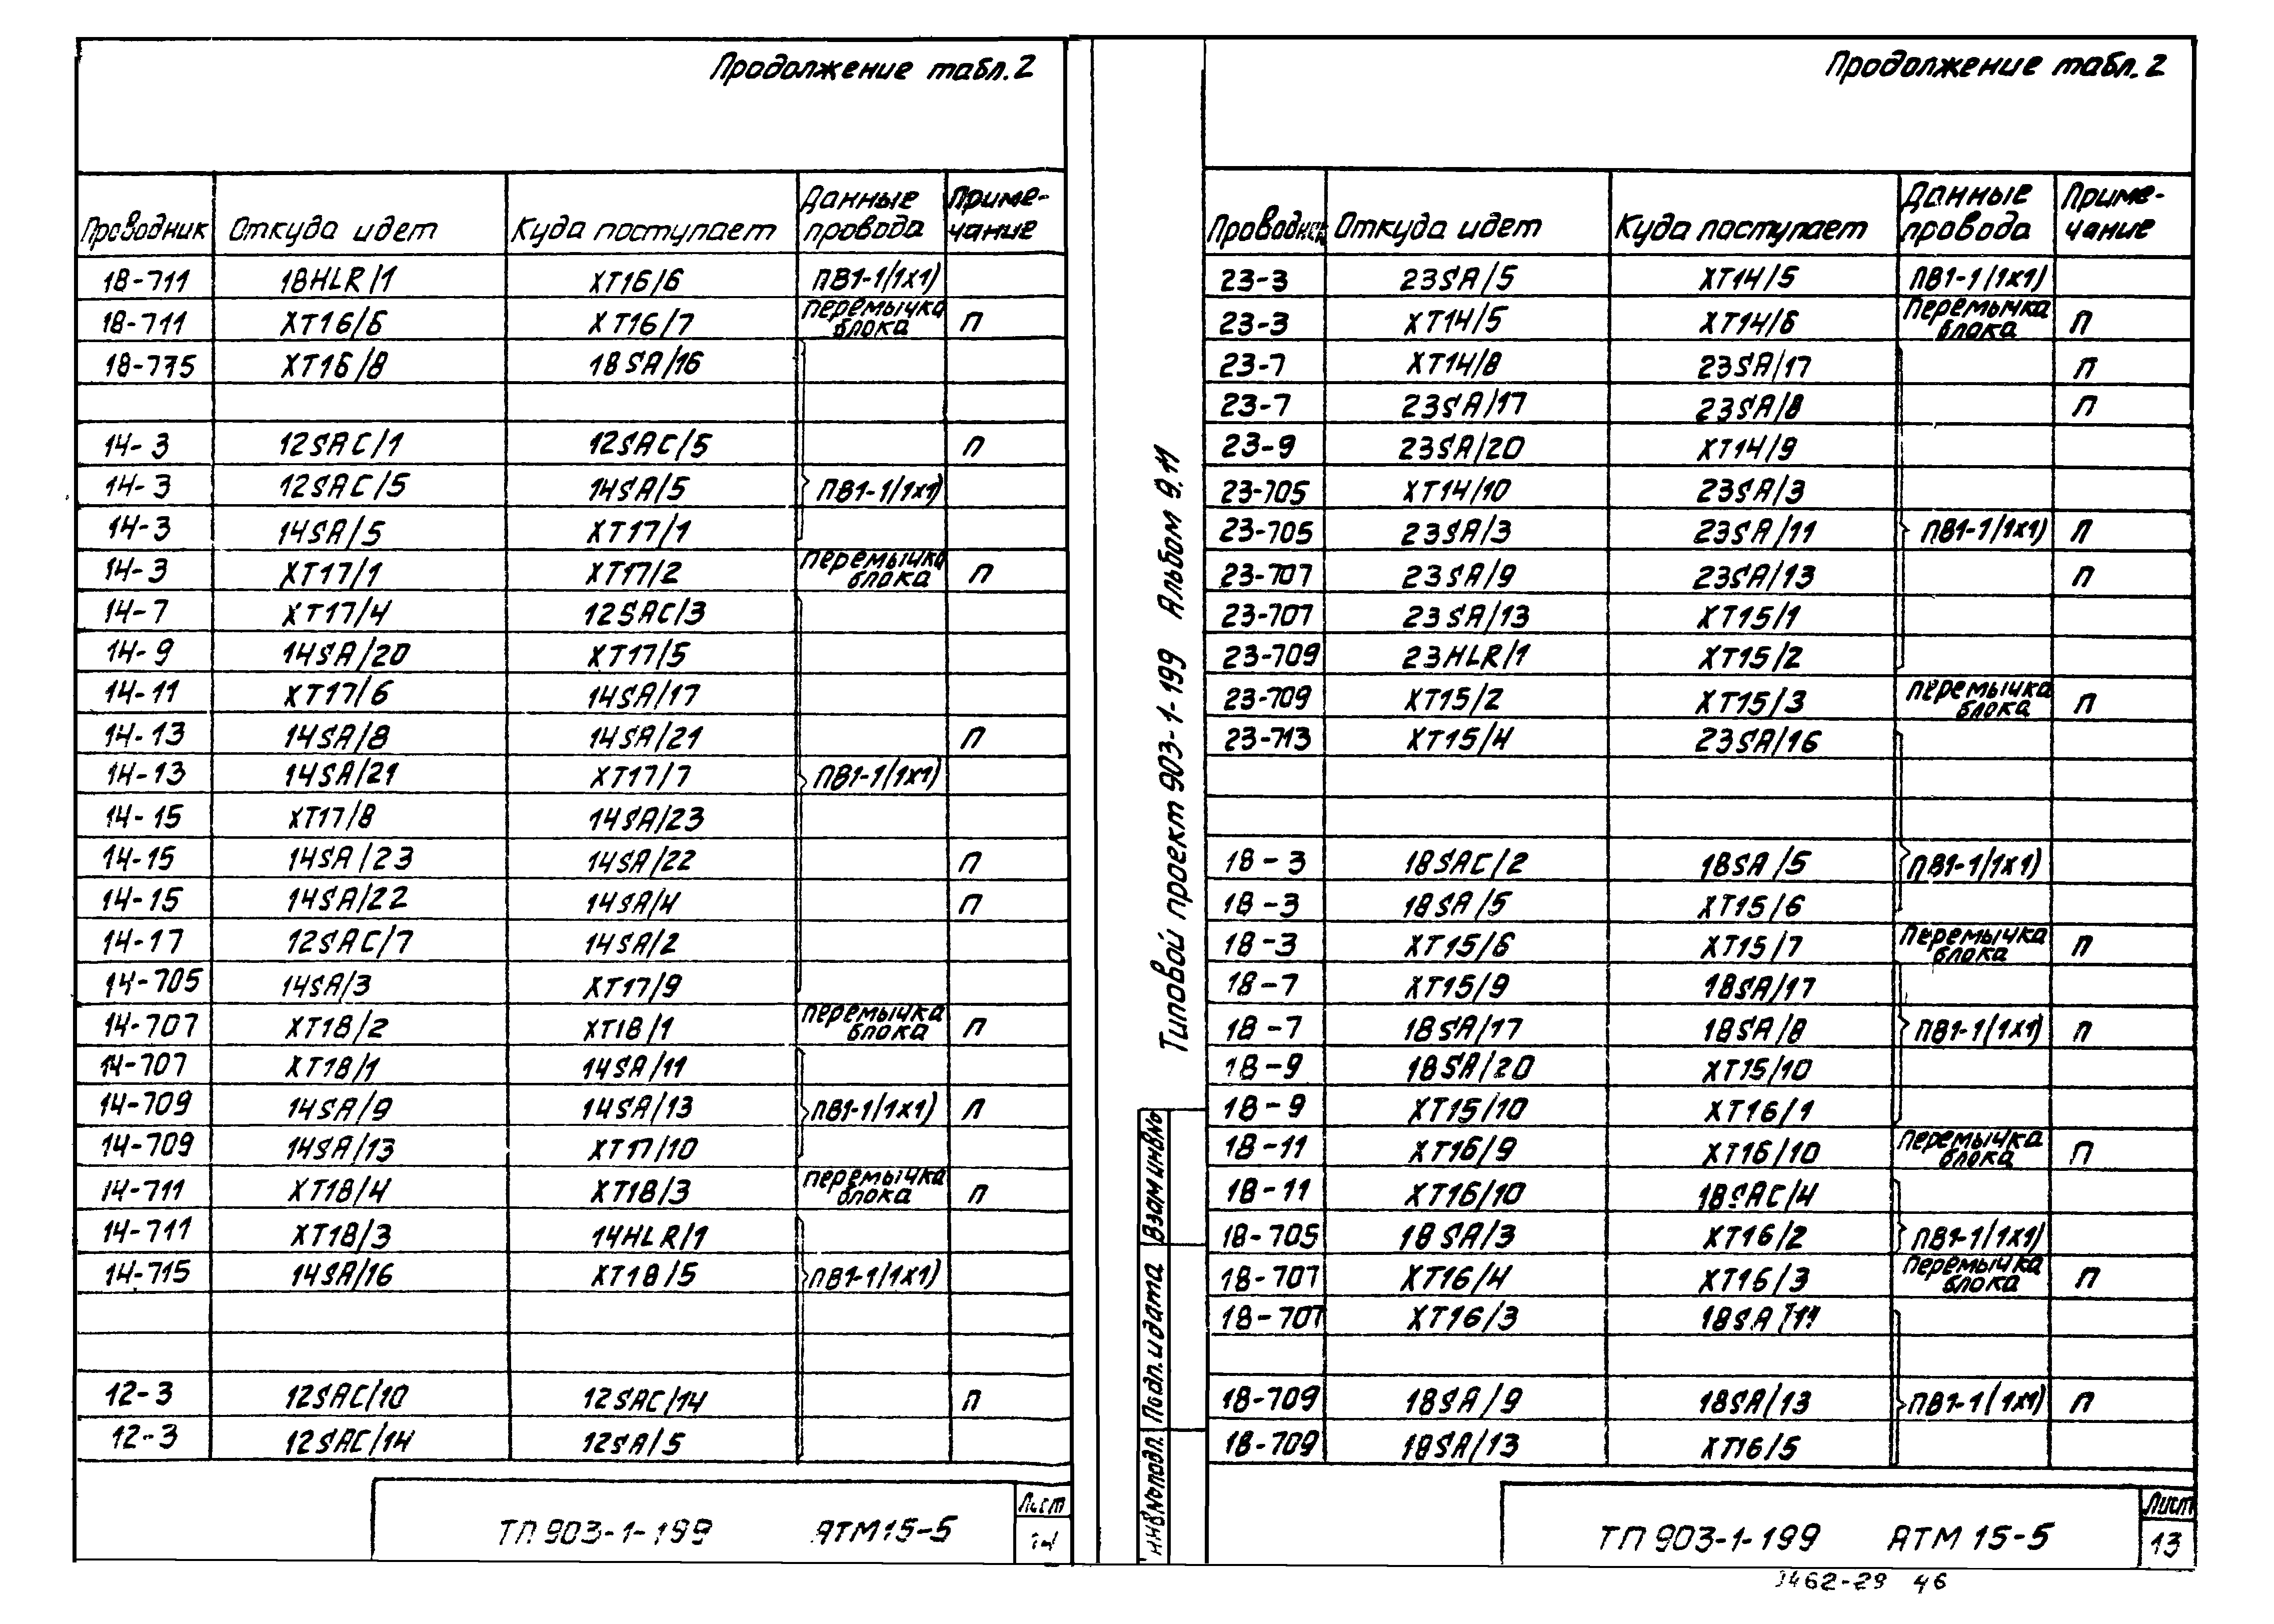 Продолжение табл.2
Проводник Откуда идет Куда поступает Данные провода Примечание
18-711 18HLR/1 XT16/6 ПВ1-1/1х1)
18-711 XT16/6 XT16/7 перемычка блока П
18-775 XT16/8 18SA/16
14-3 12SAC/1 12SAC/5 П
14-3 12SAC/5 14SA/5 ПВ1-1/1х1)
14-3 14SA/5 XT17/1
14-3 XT17/1 XT17/2 перемычка блока П
14-7 XT17/4 12SAC/3
14-9 14SA/20 XT17/5
14-11 XT17/6 14SA/17
14-13 14SA/8 14SA/21 П
14-13 14SA/21 XT17/7 ПВ1-1/1х1)
14-15 XT17/8 14SA/23
14-15 14SA/23 14SA/22 П
14-15 14SA/22 14SA/4 П
14-17 12SAC/7 14SA/2
14-705 14SA/3 XT17/9
14-707 XT18/2 XT18/1 перемычка блока П
14-707 XT18/1 14SA/11
14-709 14SA/9 14SA/13 ПВ1-1/1х1) П
14-709 14SA/13 XT17/10
14-711 XT18/4 XT18/3 перемычка блока П
14-711 XT18/3 14HLR/1
14-715 14SA/16 XT18/5 ПВ1-1/1х1)
12-3 12SAC/10 12SAC/14 П
12-3 12SAC/14 12SA/5
ТП 903-1-199 АТМ15-5
Лист
Типовой проект 903-1-199 Альбом 9.11
Взам инв№
Подп. и дата
Инв№подл.
Продолжение табл.2
Проводник Откуда идет Куда поступает Данные провода Примечание
23-3 23SA/5 XT14/5 ПВ1-1/1х1)
23-3 XT14/5 XT14/6 Перемычка блока П
23-7 XT14/8 23SA/17 П
23-7 23SA/17 23SA/8 П
23-9 23SA/20 XT14/9
23-705 XT14/10 23SA/3
23-705 23SA/3 23SA/11 ПВ1-1/1х1) П
23-707 23SA/9 23SA/13 П
23-707 23SA/13 XT15/1
23-709 23HLR/1 XT15/2
23-709 XT15/2 XT15/3 перемычка блока П
23-713 XT15/4 23SA/16
18-3 18SAC/2 18SA/5 ПВ1-1/1х1)
18-3 18SA/5 XT15/6
18-3 XT15/6 XT15/7 Перемычка блока П
18-7 XT15/9 18SA/17
18-7 18SA/17 18SA/8 ПВ1-1/1х1) П
18-9 18SA/20 XT15/10
18-9 XT15/10 XT16/1
18-11 XT16/9 XT16/10 перемычка блока П
18-11 XT16/10 18SAC/4
18-705 18SA/3 XT16/2 ПВ1-1/1х1)
18-707 XT16/4 XT16/3 перемычка блока П
18-707 XT16/3 18SA/11
18-709 18SA/9 18SA/13 ПВ1-1/1х1) П
18-709 18SA/13 XT16/5
ТП 903-1-199 АТМ 15-5
Лист
13
462-29 46